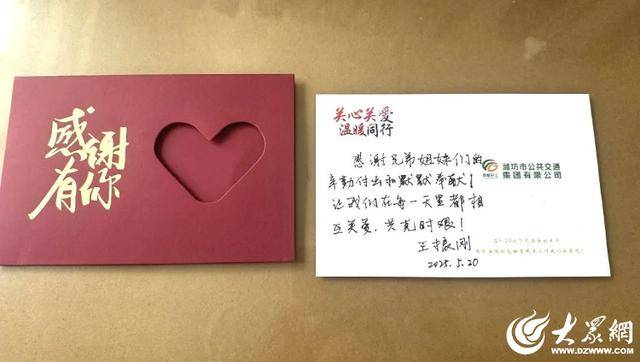 感谢
有你
关心关爱
温暖同行
感谢兄弟姐妹们的
辛勤付出和默默奉献！
让我们在每一天里都相
互关爱，共克时艰！
潍坊市公共交通
集团有限公司
2025.5.20
大众網
WWW.DZWWW.COM